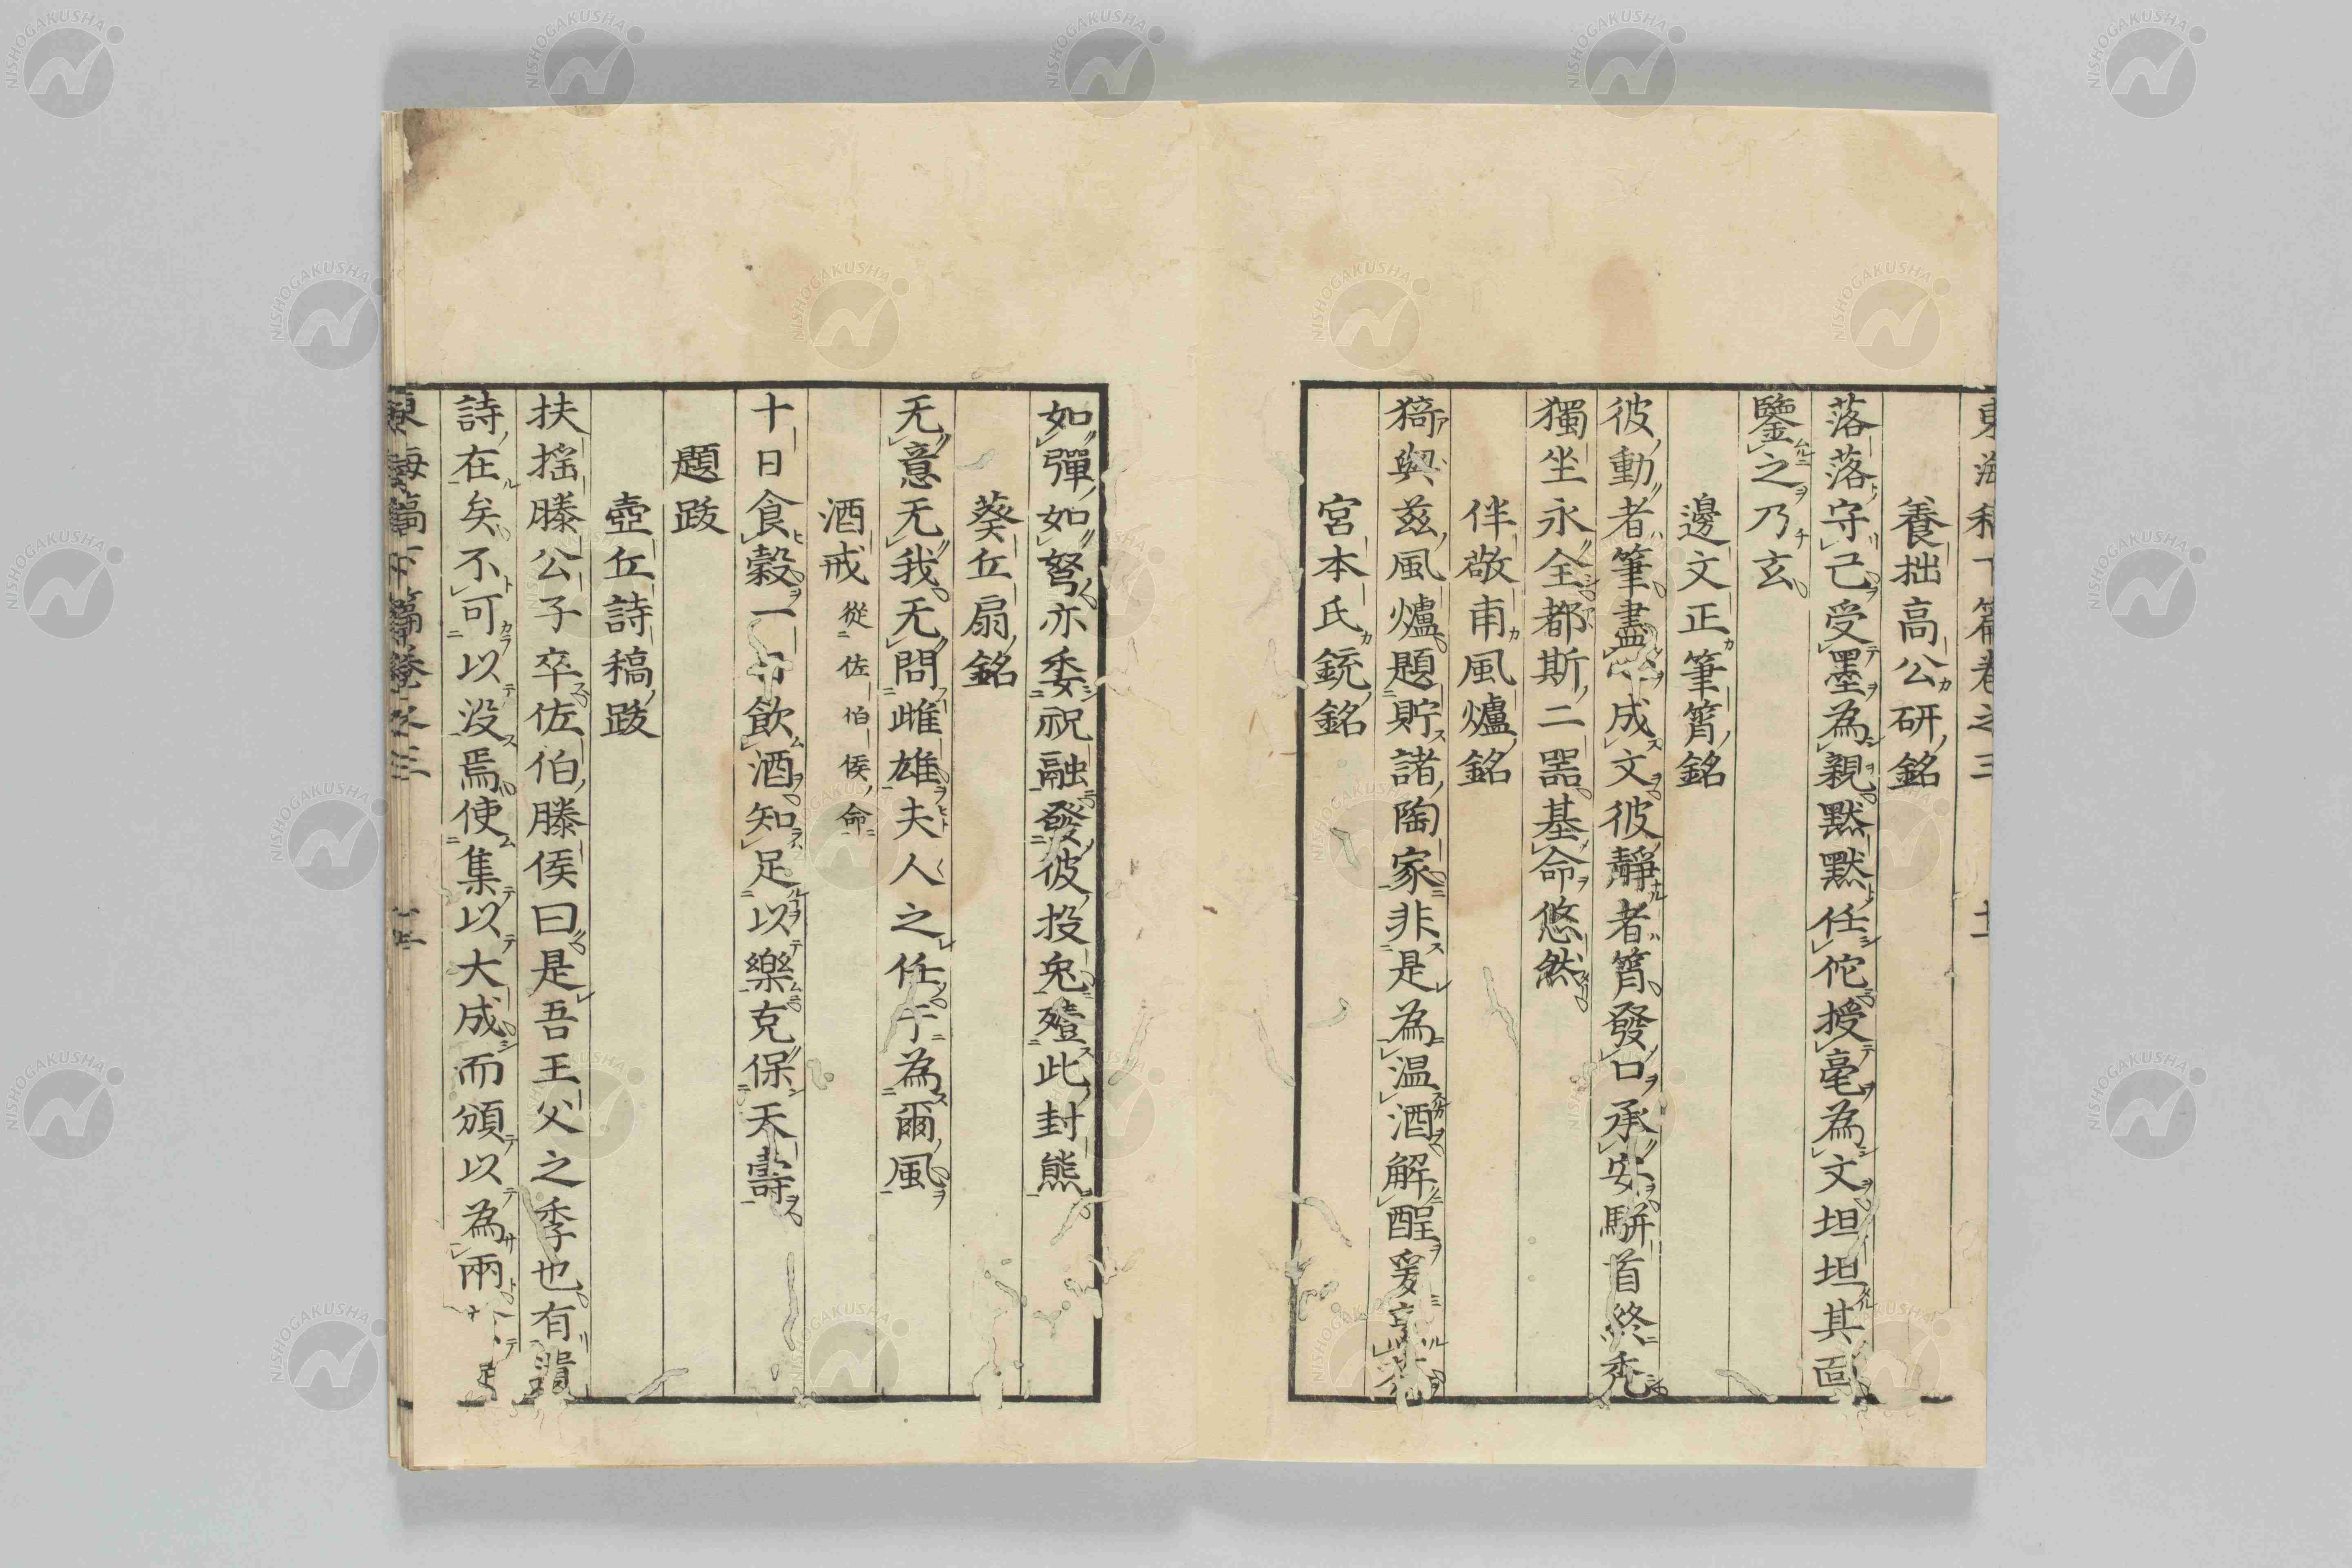 養拙高公研銘
落落守己受墨為親默默任佗授毫為文坦坦其面
鑒之乃玄
邊文正筆筲銘
彼動者筆盡成文彼靜者筲發口承安駢首終禿
獨坐永全都斯二器基命悠然
伴敬甫風爐銘
猗與茲風爐題貯諸陶家非是為温酒解酲爰
宮本氏銃銘
如彈如弩亦委祝融發彼投兔殪此封熊
葵丘扇銘
无意无我无問雌雄夫人之任于為爾風
酒戒 從佐伯侯命
十日食穀一日飲酒知足以樂克保天壽
題跋
壺丘詩稿跋
扶搖滕公子卒佐伯滕侯曰是吾王父之季也有
詩在矣不可以没焉使集以大成而頒以為兩
東海稿下篇卷之三